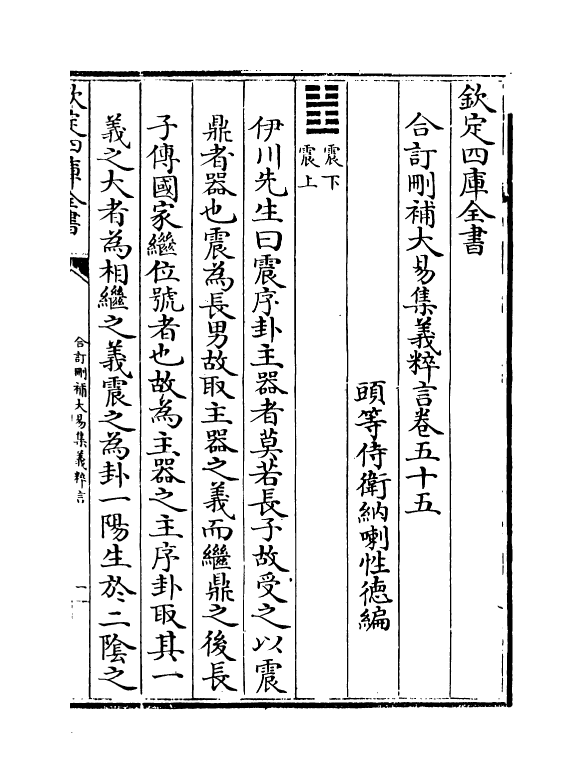 欽定四庫全書
合訂刪補大易集義粹言卷五十五
頭等侍衛納喇性德編
震下
震上
伊川先生曰震序卦主器者莫若長子故受之以震
鼎者器也震為長男故取主器之義而繼鼎之後長
子傳國家繼位號者也故為主器之主序卦取其一
義之大者為相繼之義震之為卦一陽生於二隂之
欽定四庫全書
合訂刪補大易集義粹言
一